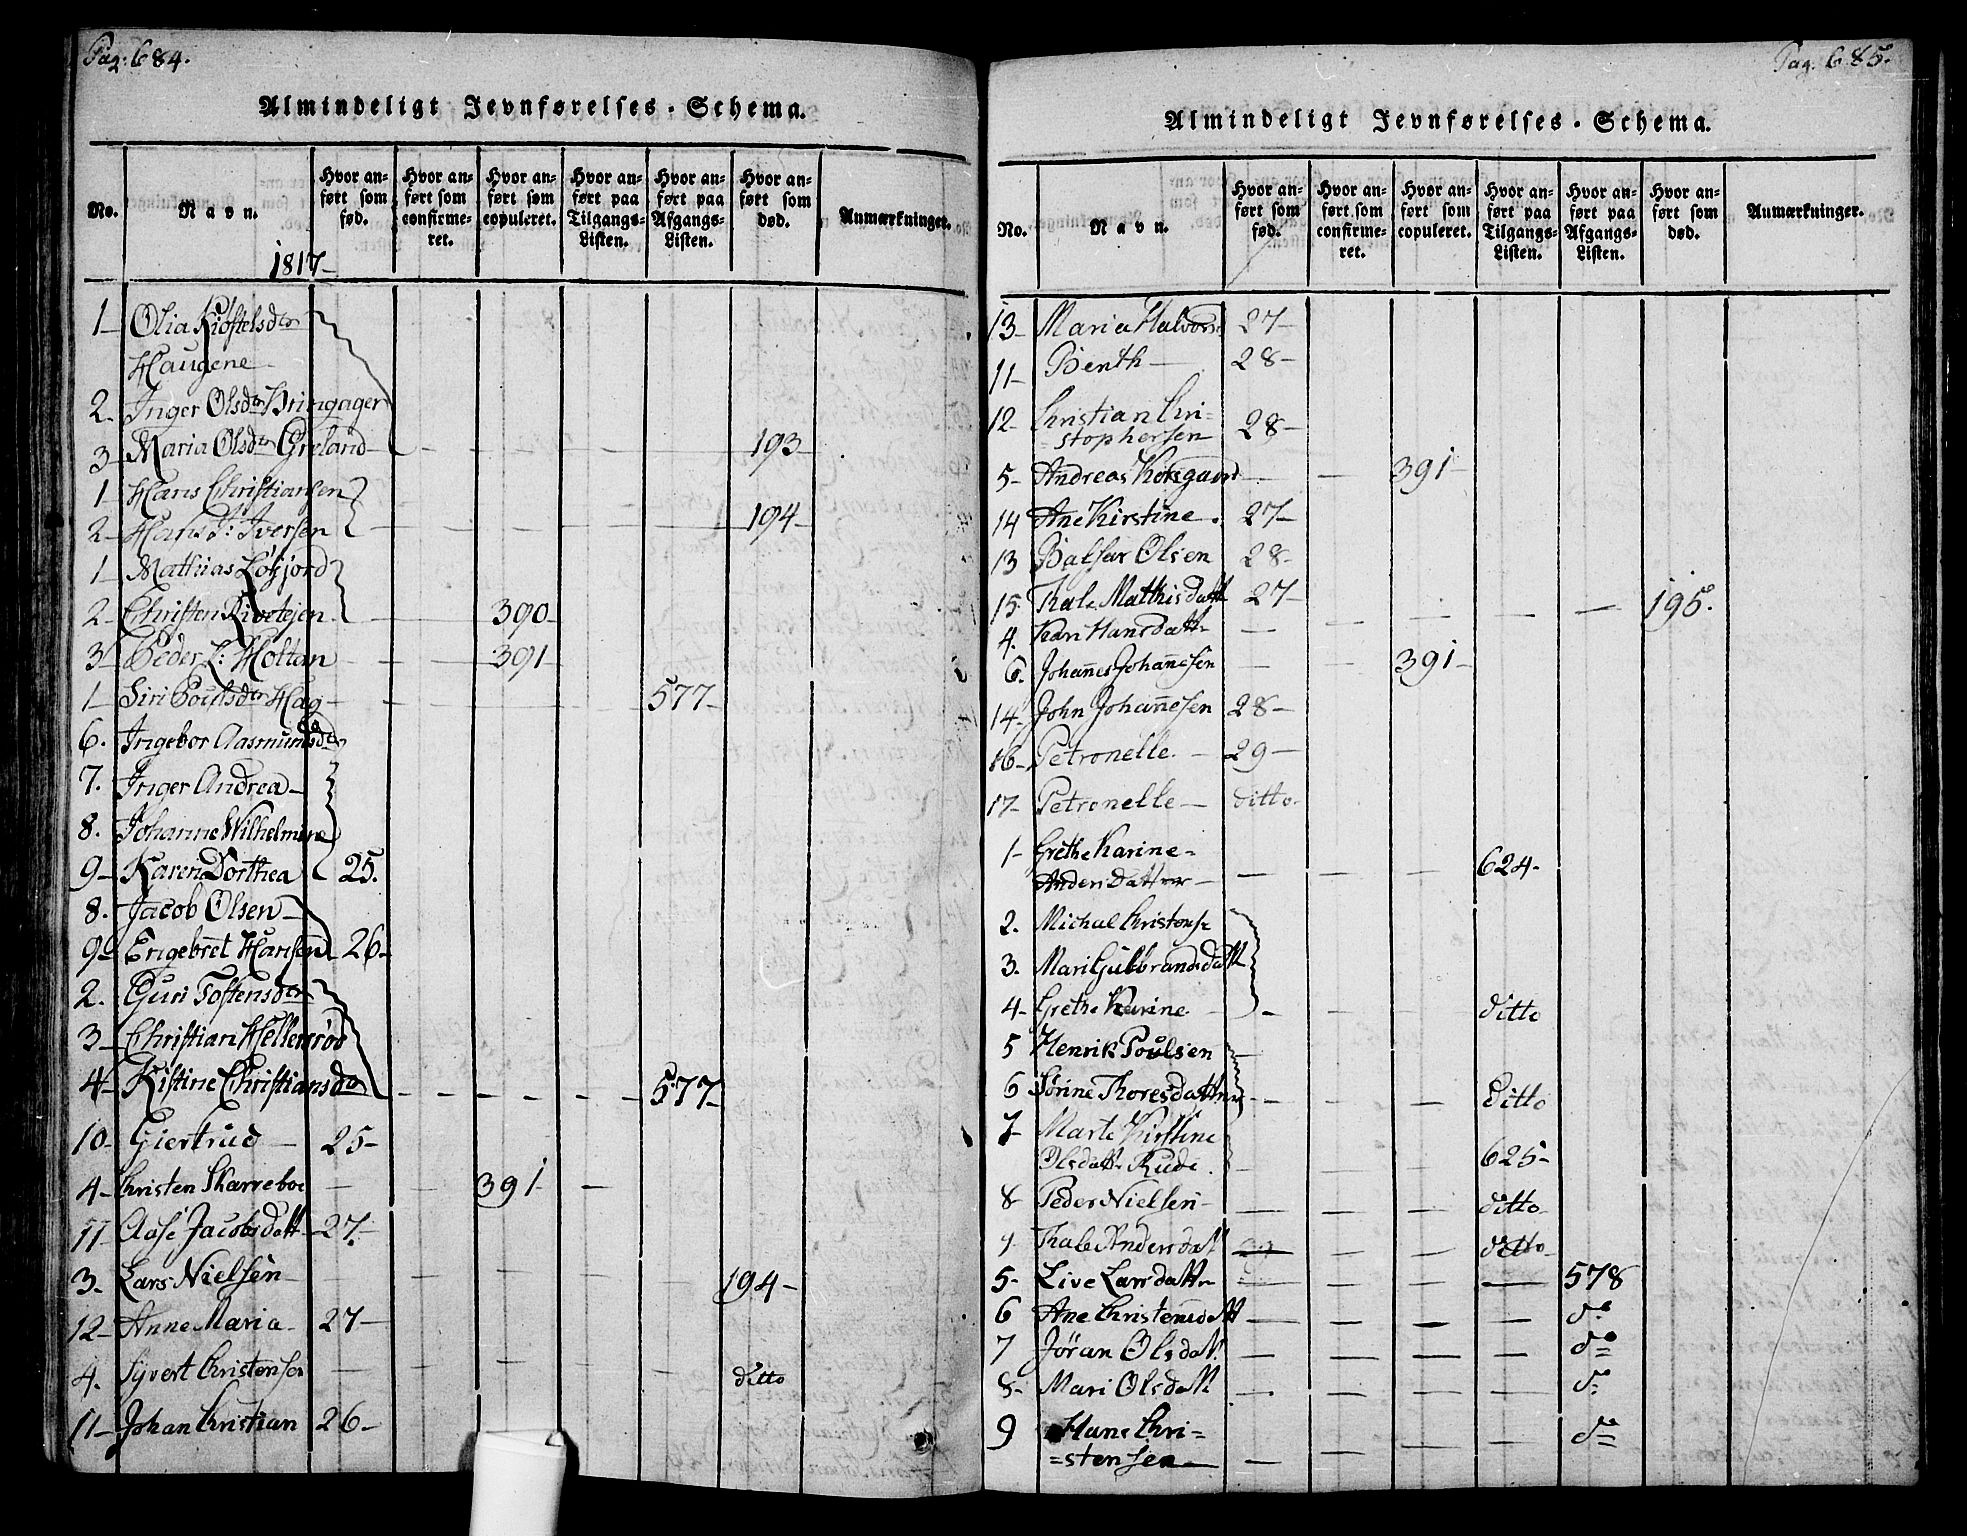 Pag: 684.
Almindeligt Jevnførelses-Schema.
No. Navn. Hvor anført som fød. Hvor anført som confirmeret. Hvor anført som copuleret. Hvor anført paa Tilgangs-Listen. Hvor anført paa Afgangs-Listen. Hvor anført som død. Anmærkninger.
1817-
1- Olia Kiøstelsdtr
Haugene
2. Inger Olsdtr Kringager
3- Maria Olsdtr Greland - - - - - 193
1- Hans Christiansen
2- Hans J: Iversen - - - - - 194-
1- Mathias
2- Christen - - 390-
3- Peder L: Holtan - - 391-
1- Siri Poulsdtr Hag - - - - 577-
6. Ingebor Aasmundsdtr
7. Inger Andrea-
8. Johanne Wilhelmine
9- Karen Dorthea 25.
8. Jacob Olsen-
9- Engebret Hansen 26-
2. Guri Toftensdtr
3- Christian Hellersrød
4- Kistine Christiansdtr - - - - 577-
10- Giertrud - 25-
4- Christen Skarreboe - - 391- -
11 Aase Jacobsdatt 27.
3. Lars Nielsen - - - - - 194-
12- Anne Maria- 27-
4. Syvert Christensen - - - - - ditto
11- Johan Christian 26-
Pag. 685.
Almindeligt Jevnførelses-Schema.
No. Navn. Hvor anført som fød. Hvor anført som confirmeret. Hvor anført som copuleret. Hvor anført paa Tilgangs-Listen. Hvor anført paa Afgangs-Listen. Hvor anført som død. Anmærkninger.
13- Maria Halvors 27-
11- Benth- 28-
12- Christian Chri=
=stophersen 28-
5- Andreas Korsgaard - - 391-
14 Ane Kirstine. 27-
13 Balsar Olsen 28-
15. Thale Mathisdatt 27- - - - - 195.
4. Kari Hansdatt -
6. Johannes Johannesen - - 391-
14- John Johannesen 28-
16- Petronelle. - 29-
17- Petronelle- ditto-
1- Grethe Karine-
Andersdatter - - - - 624-
2. Michael Christens
3. Mari Gulbrandsdatt
4- Grethe Karine - - - - ditto
5 Henrik Poulsen
6 Sørine Thoresdatter - - - ditto
7 Marte Kirstine
Olsdatt. Rude. - - - 625-
8 Peder Nielsen - - - - ditto-
9 Thale Andersdatt - - - ditto-
5- Live Larsdattr - - - - 578
6 Ane Christensdatt - - - - do
7 Jøran Olsdatt. - - - - do
8- Mari Olsdatt - - - - do
9 Hans Chri=
=stensen - - - - - do